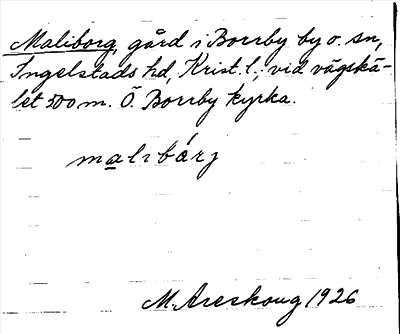 Maliborg, gård i Borrby by o. sn,
Ingelstads hd, Krist. l.; vid vägskä-
let 500 m. Ö. Borrby kyrka.
malibárj
M. Areskoug 1926